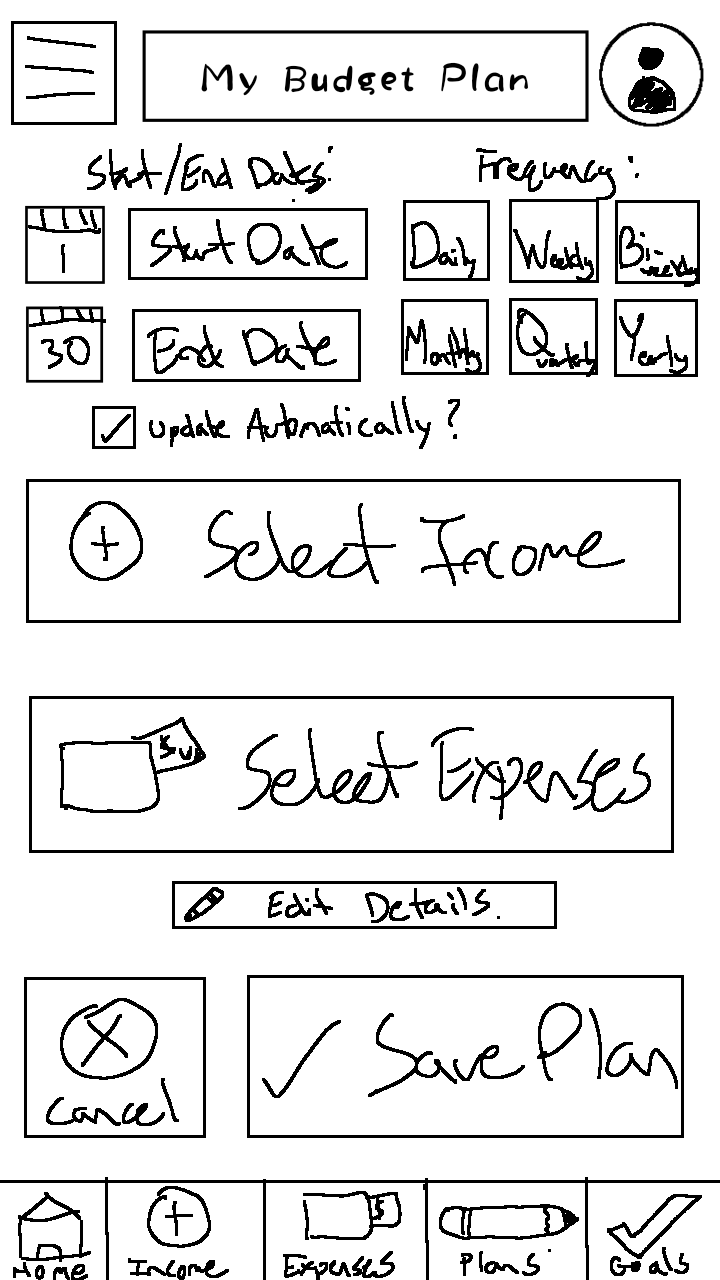 My Budget Plan
Start/End Dates:
Frequency:
1
Start Date
Daily
Weekly
Bi-weekly
30
End Date
Monthly
Quarterly
Yearly
Update Automatically?
Select Income
$
Select Expenses
Edit Details.
Cancel
Save Plan
$
Home
Income
Expenses
Plans
Goals